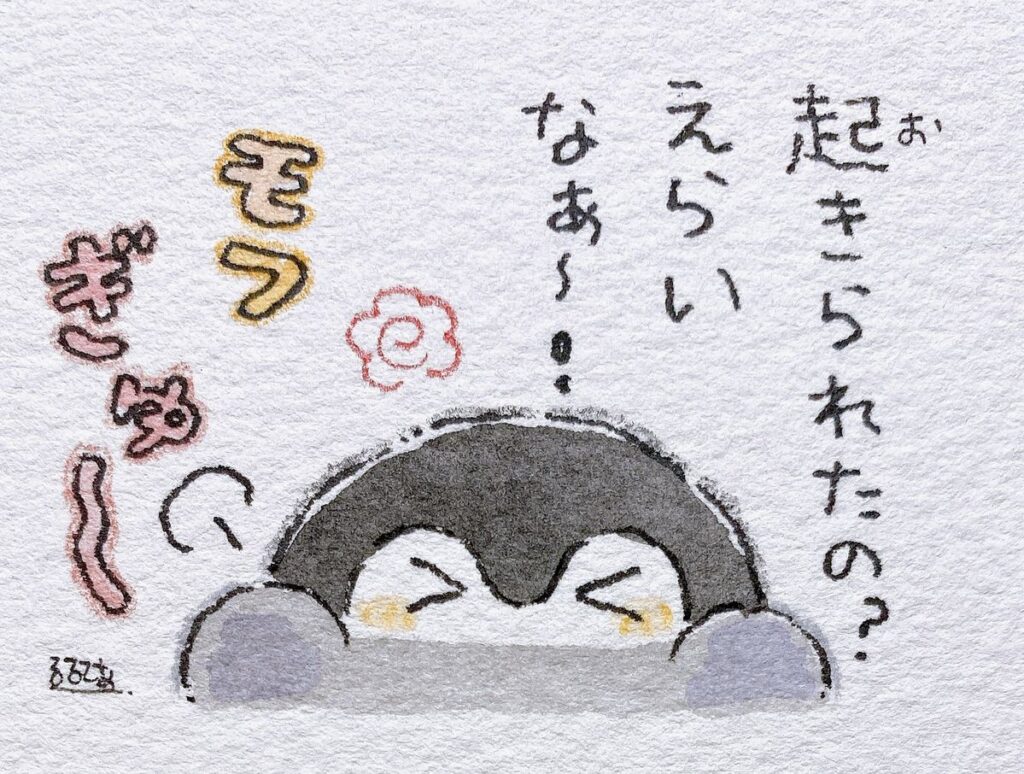 起きられたの?
お
えらい
なぁ〜:
モフ
ぎゅ〜
るるてあ.